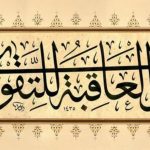 والعاقبة للتقوى
١٤٣٥